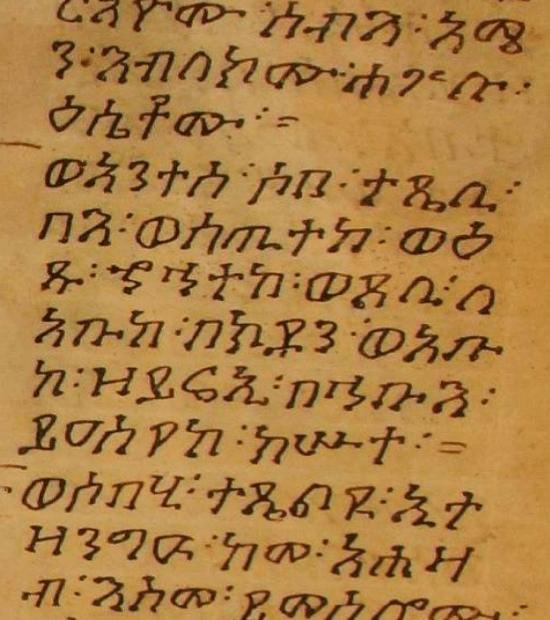 ርእዮሙ፡ ሰብእ፡ አማ
ን፡ እብለክሙ፡ ሐጕሉ፡
ዕሴቶሙ፡=
ወአንተሰ፡ ሶበ፡ ትጼሊ፡
በእ፡ ወስጤተከ፡ ወዕ
ጹ፡ ኆኅተከ፡ ወጸሊ፡ ለ
አቡከ፡ በክዱን፡ ወአቡ
ከ፡ ዘይሬኢ፡ በኅቡእ፡
ይዐስየከ፡ ክሡተ፡=
ወሶበሂ፡ ትጼልዩ፡ ኢት
ዘንግዑ፡ ከመ፡ አሕዛ
ብ፡ እስመ፡ ይመስሎሙ፡